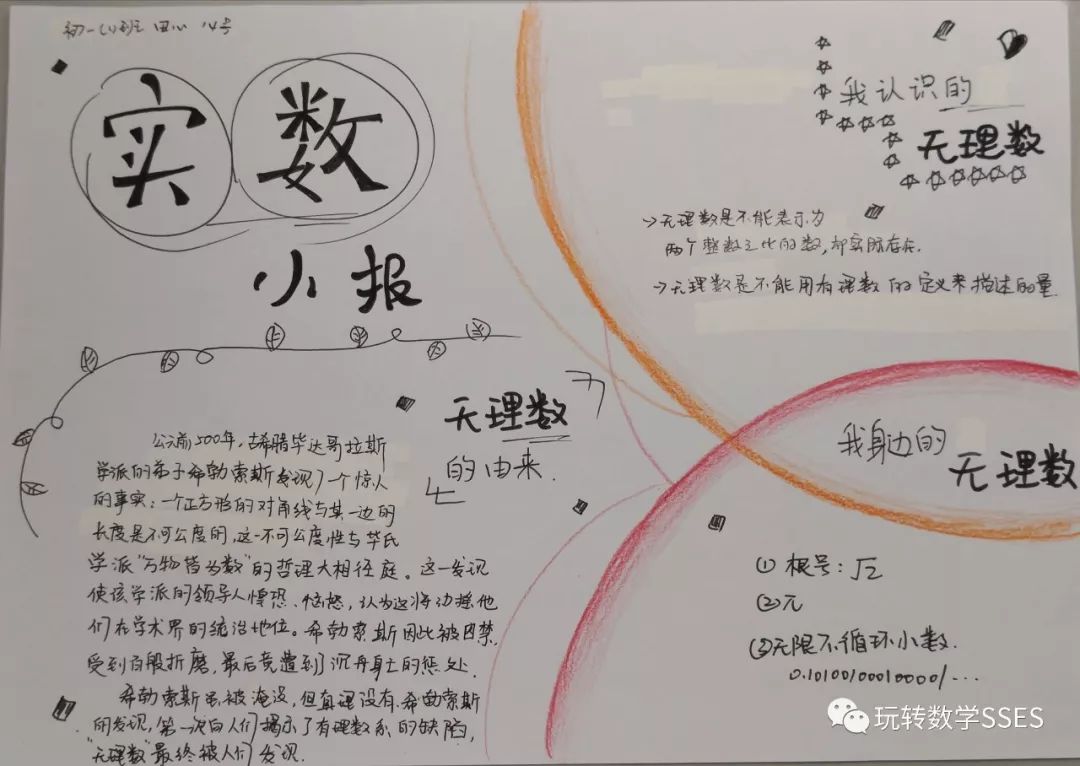 初一(4)班 田心 14号
实数
小报
无理数
的由来.
公元前500年，古希腊毕达哥拉斯
学派的弟子希勃索斯发现了一个惊人
的事实：一个正方形的对角线与其一边的
长度是不可公度的，这一不可公度性与毕氏
学派"万物皆为数"的哲理大相径庭。这一发现
使该学派的领导人惶恐、恼怒，认为这将动摇他
们在学术界的统治地位。希勃索斯因此被囚禁，
受到百般折磨，最后竟遭到沉舟身亡的惩处.
希勃索斯虽被淹没，但真理没有.希勃索斯
的发现，第一次向人们揭示了有理数系的缺陷，
"无理数"最终被人们发现.
我认识的
无理数
→无理数是不能表示为
两个整数之比的数，却实际存在.
→无理数是不能用有理数的定义来描述的量
我身边的
无理数
(1) 根号：√2
(2) π
(3) 无限不循环小数.
0.1010010001...
玩转数学SSES